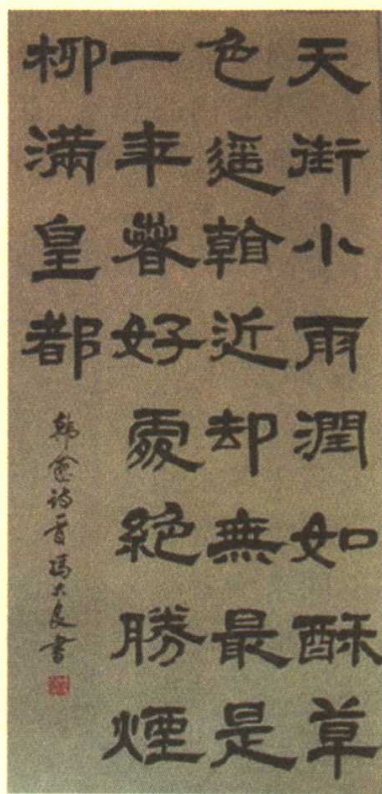 天街小雨潤如酥草
色遥看近却無最是
一年春好處絶勝煙
柳滿皇都
韩愈诗首冯大良書